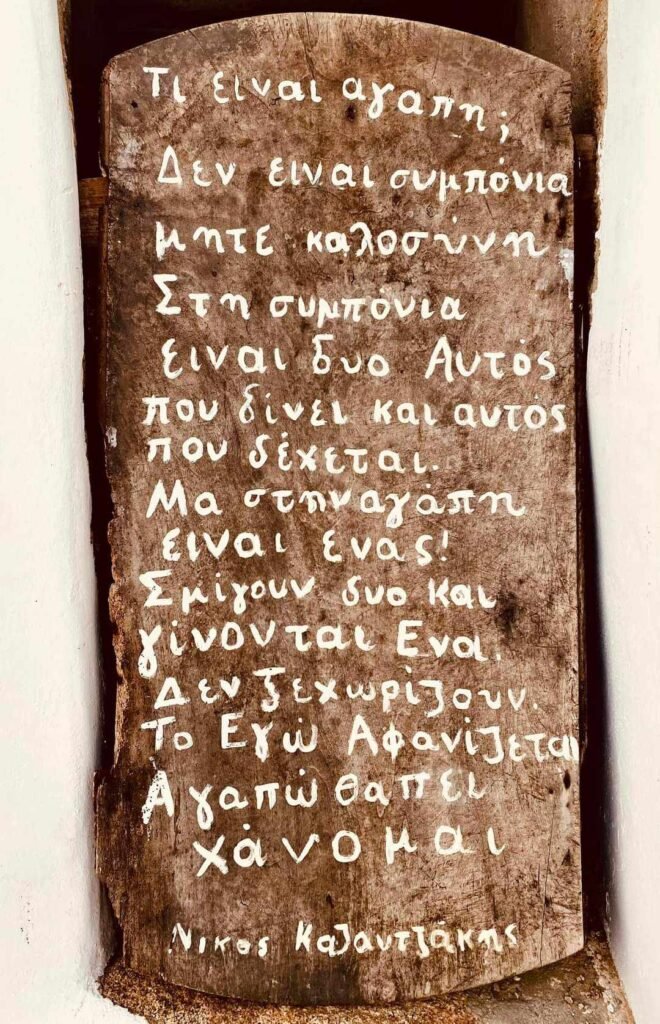 Τι ειναι αγαπη;
Δεν ειναι συμπόνια
μητε καλοσύνη
Στη συμπόνια
ειναι δυο Αυτός
που δίνει και αυτός
που δέχεται.
Μα στην αγάπη
ειναι ενας!
Σμίγουν δυο και
γίνονται Ενα.
Δεν ξεχωρίζουν.
Το Εγώ Αφανίζεται
Αγαπώ θα πει
χάνομαι
Νικος Καζαντζάκης